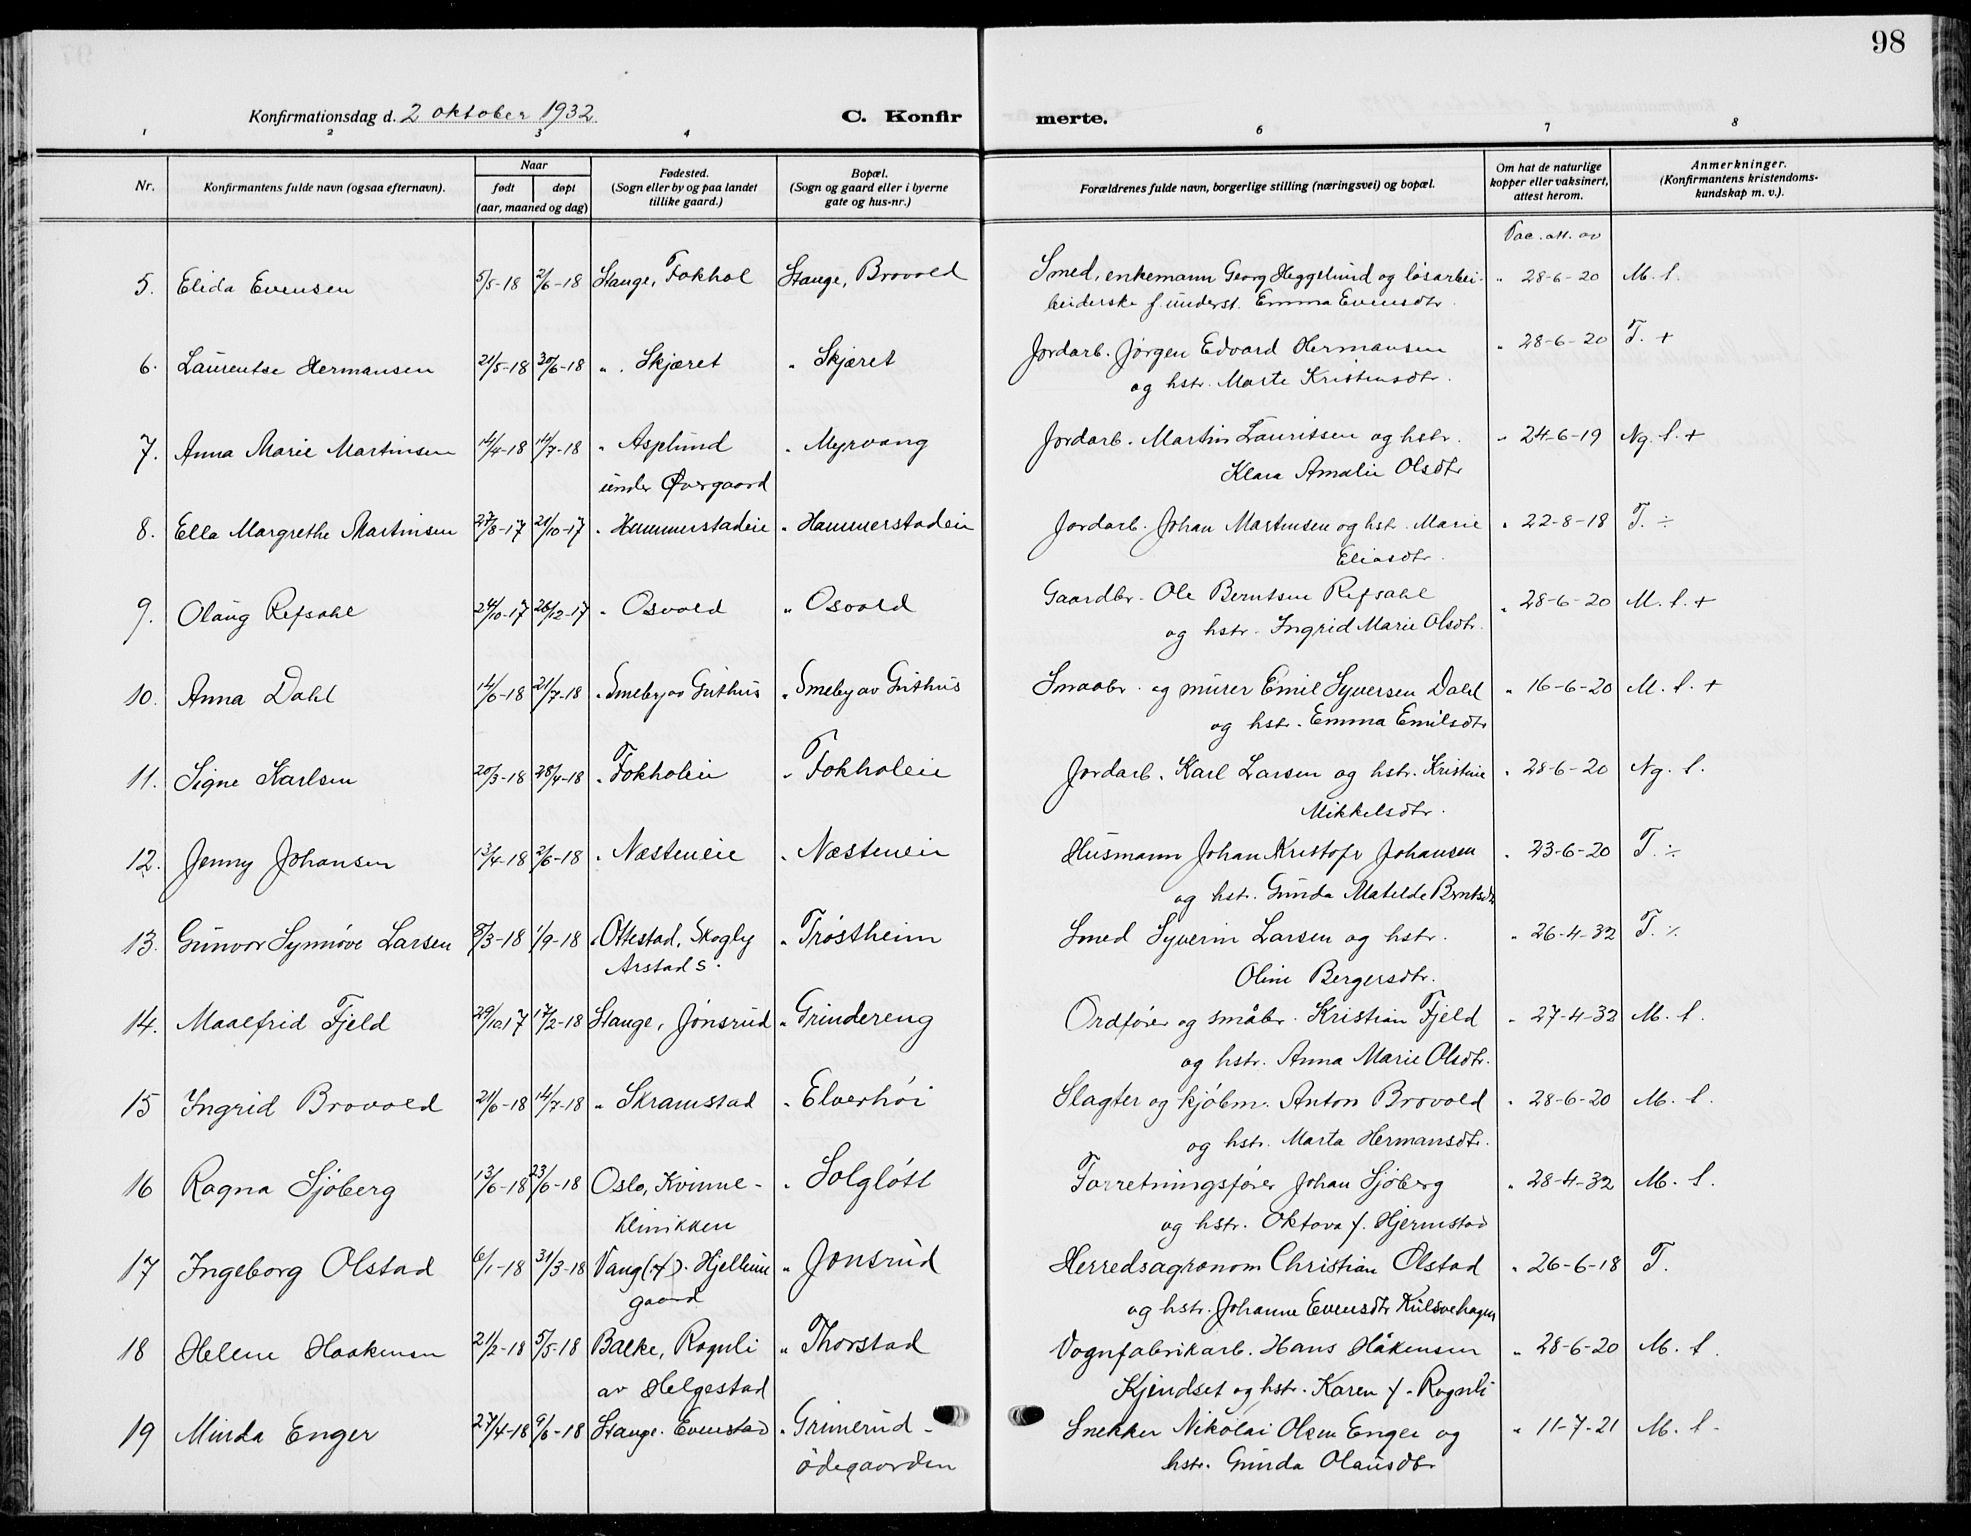 98
Konfirmationsdag d. 2 oktober 1932
C. Konfir
merte.
1 2 3 4 6 7 8
Nr.
Konfirmantens fulde navn (ogsaa efternavn).
Naar
født døpt
(aar, maaned og dag)
Fødested.
(Sogn eller by og paa landet
tillike gaard.)
Bopæl.
(Sogn og gaard eller i byerne
gate og hus-nr.)
Forældrenes fulde navn, borgerlige stilling (næringsvei) og bopæl.
Om hat de naturlige
kopper eller vaksinert,
attest herom.
Anmerkninger.
(Konfirmantens kristendoms-
kundskap m. v.).
Vac. att. av
5. Elida Evensen 5/5-18 2/6-18 Stange, Fokhol Stange, Brovold Smed, enkemann Georg Heggelund og løsarbei- " 28-6-20 M. t.
beiderske f. underst. Emma Evensdtr.
6. Laurentse Hermansen 21/5-18 30/6-18 " Skjæret " Skjæret Jordarb. Jørgen Edvard Hermansen " 28-6-20 T. +
og hstr. Marte Kristensdtr.
7. Anna Marie Martinsen 14/4-18 14/7-18 " Asplund " Myrvang Jordarb. Martin Lauritsen og hstr. " 24-6-19 Ng. t. +
under Øvergaard Klara Amalie Olsdtr
8. Ella Margrethe Martinsen 27/8-17 21/10-17 " Hammerstadeie " Hammerstadeie Jordarb. Johan Martinsen og hstr. Marie " 22-8-18 T. ÷
Eliasdtr.
9. Olaug Refsahl 24/10-17 26/12-17 " Osvold " Osvold Gaardbr. Ole Berntsen Refsahl " 28-6-20 M. t. +
og hstr. Ingrid Marie Olsdtr.
10. Anna Dahl 14/6-18 21/7-18 " Smeby av Guthus " Smeby av Guthus Smaabr. og murer Emil Syversen Dahl " 16-6-20 M. t. +
og hstr. Emma Emilsdtr
11. Signe Karlsen 20/3-18 28/4-18 " Fokholeie " Fokholeie Jordarb. Karl Larsen og hstr. Kristine " 28-6-20 Ng. t.
Mikkelsdtr.
12. Jenny Johansen 13/4-18 2/6-18 " Næsteneie " Næsteneie Husmann Johan Kristofr Johansen " 23-6-20 T. ÷
og hstr. Gunda Matelde Berntsdtr
13. Gunvor Synnøve Larsen 8/3-18 1/9-18 " Ottestad, Skogly " Trøstheim Smed Syverin Larsen og hstr. " 26-4-32 T. ÷
Arstad s. Oline Bergersdtr.
14. Maalfrid Fjeld 29/10-17 17/2-18 Stange, Jønsrud " Grindereng Ordfører og småbr. Kristian Fjeld " 27-4-32 M. t.
og hstr. Anna Marie Olsdtr.
15 Ingrid Brovold 21/6-18 14/7-18 " Skramstad " Elverhøi Slagter og kjøbm. Anton Brovold " 28-6-20 M. t.
og hstr. Marta Hermansdtr.
16 Ragna Sjøberg 13/6-18 23/6-18 Oslo, Kvinne- " Solgløtt Forretningsfører Johan Sjøberg " 28-4-32 M. t.
klinikken og hstr. Oktova f. Hjermstad
17 Ingeborg Olstad 6/1-18 31/3-18 Vang (H). Hjellum " Jønsrud Herredsagronom Christian Olstad " 26-6-18 T.
gaard og hstr. Johanne Evensdtr Kulsvehagen
18 Helene Haakensen 21/2-18 5/5-18 Balke, Rognli " Thorstad Vognfabrikarb. Hans Håkensen " 28-6-20 M. t.
av Helgestad Kjendset og hstr. Karen f. Rognli
19 Minda Enger 27/4-18 9/6-18 Stange. Evenstad " Grimerud- Snekker Nikolai Olsen Enger og " 11-7-21 M. t.
ødegaarden hstr. Gunda Olausdtr